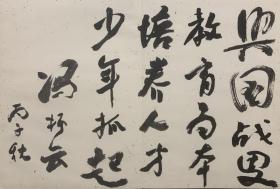 兴国战略
教育为本
培养人才
少年抓起
冯楷云
丙子秋